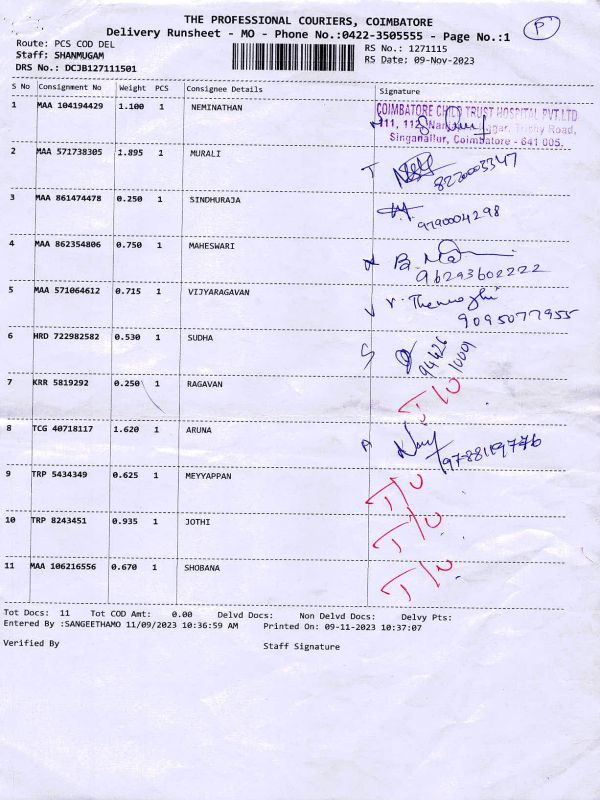 THE PROFESSIONAL COURIERS, COIMBATORE
Delivery Runsheet - MO - Phone No.:0422-3505555 - Page No.:1
P
Route: PCS COD DEL
RS No.: 1271115
Staff: SHANMUGAM
RS Date: 09-Nov-2023
DRS No.: DCJB127111501
S No Consignment No Weight PCS Consignee Details Signature
1 MAA 104194429 1.100 1 NEMINATHAN
COIMBATORE CHILD TRUST HOSPITAL PVT.LTD
111, 112, Nagar, Trichy Road,
Singanallur, Coimbatore - 641 005.
2 MAA 571738305 1.895 1 MURALI
T
8220003347
3 MAA 861474478 0.250 1 SINDHURAJA
9790004298
4 MAA 862354806 0.750 1 MAHESWARI
96293602222
5 MAA 571064612 0.715 1 VIJYARAGAVAN
9095077955
6 HRD 722982582 0.530 1 SUDHA
S
94426
10091
7 KRR 5819292 0.250 1 RAGAVAN
8 TCG 40718117 1.620 1 ARUNA
A
9 TRP 5434349 0.625 1 MEYYAPPAN
T/U
10 TRP 8243451 0.935 1 JOTHI
T/U
11 MAA 106216556 0.670 1 SHOBANA
T/U
Tot Docs: 11 Tot COD Amt: 0.00 Delvd Docs: Non Delvd Docs: Delvy Pts:
Entered By :SANGEETHAMO 11/09/2023 10:36:59 AM Printed On: 09-11-2023 10:37:07
Verified By Staff Signature